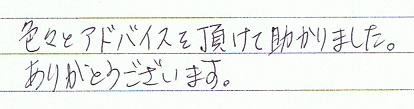 色々とアドバイスを頂けて助かりました。
ありがとうございます。